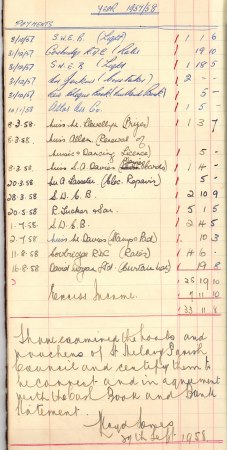 YEAR 1957/58
PAYMENTS
3/10/57 S.W.E.B. (Light) 1 1 6
3/10/57 Cowbridge R.D.C. (Rates 19 10
3/10/57 S.W.E.B. (Light) 1 18 5
3/10/57 Mrs Jenkins (Caretaker) 2 - -
3/10/57 5 -
10/1/58 Atlas Ins. Co. 1 5 -
8-3-58. Miss M. Llewellyn (Piper) 1 3 7
Miss Allen (Renewal of
Music & Dancing Licence) 5 -
8-3-58. Miss S.A. Davies 4 -
20-3-58 (Elec. Repairs) 5 -
28-3-58 S.W.E.B. 2 10 9
20-5-58 R. Tucker & Son. 5 1 5
1-7-58 S.W.E.B. 2 4 5
2-7-58 Miss M. Davies (Stamps Pad) 10 3
11-8-58 Cowbridge RDC (Rates) 4 6 -
16-8-58 David Morgan Ltd (Curtain 19 8
25 19 10
Excess Income. 7 11 10
33 11 8
I have examined the books and
vouchers of St Hilary Parish
Council and certify them to
be correct and in agreement
with the Cash Book and Bank
Statement.
Lloyd Jones
29th Sept 1958